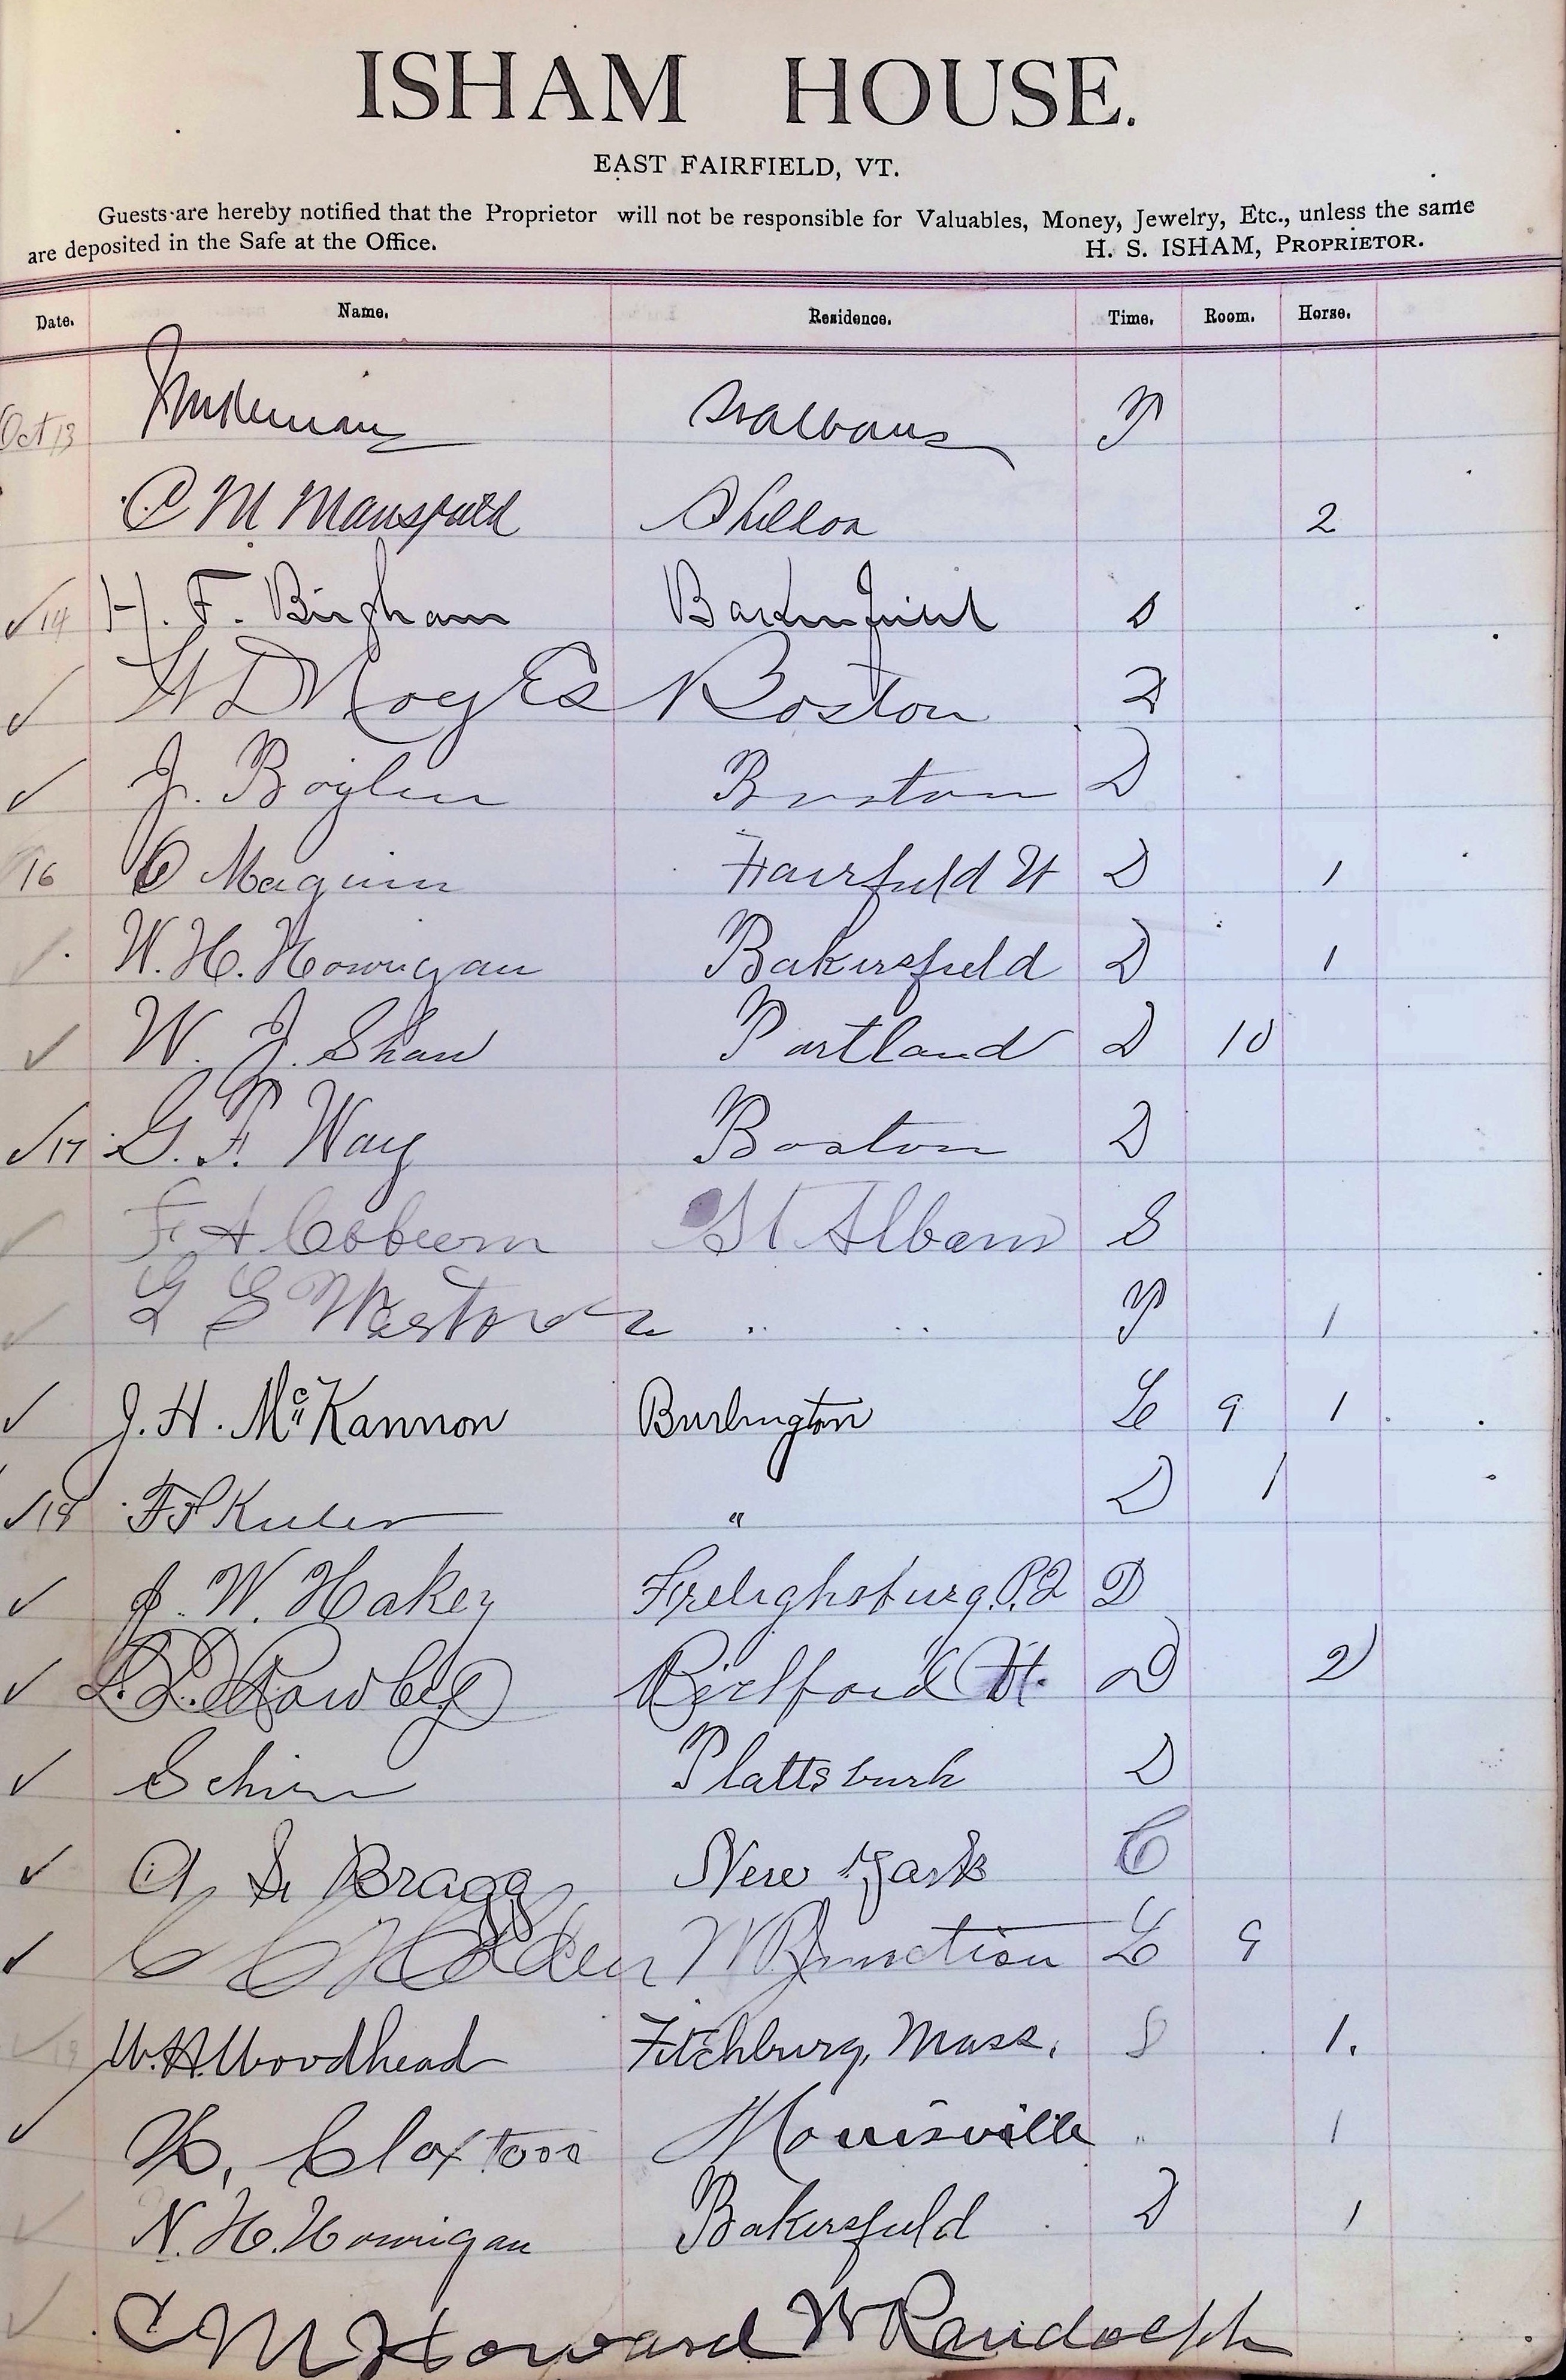 ISHAM HOUSE.
EAST FAIRFIELD, VT.
Guests are hereby notified that the Proprietor will not be responsible for Valuables, Money, Jewelry, Etc., unless the same
are deposited in the Safe at the Office. H. S. ISHAM, PROPRIETOR.
Date. Name. Residence. Time. Room. Horse.
Oct 13 St Albans
C M Mansfield Sheldon 2
✓ 14 H. F. Bingham S
✓ Noyes Boston D
✓ J. Boylen Boston D
16 Maginn Fairfield Vt D 1
✓ W. H. Howrigan Bakersfield D 1
✓ W. J. Shaw Portland D 10
✓ 17 G. F. Way Boston D
✓ F. A Coburn St Albans S
✓ G S Weston " " 1
✓ J. H. McKannon Burlington L 9 1
✓ 18 " D 1
✓ J. W. Hakey Frelighsburg, P.Q D
✓ L. L. Rowley Richford Vt. D 2
✓ Plattsburk D
✓ A S. Bragg New York
✓ C C Holden W R Junction L 9
✓ 19 W. A. Woodhead Fitchburg, Mass. S 1.
✓ Claxton Morrisville " 1
✓ N. H. Howrigan Bakersfield D 1
✓ C M Howard W Randolph